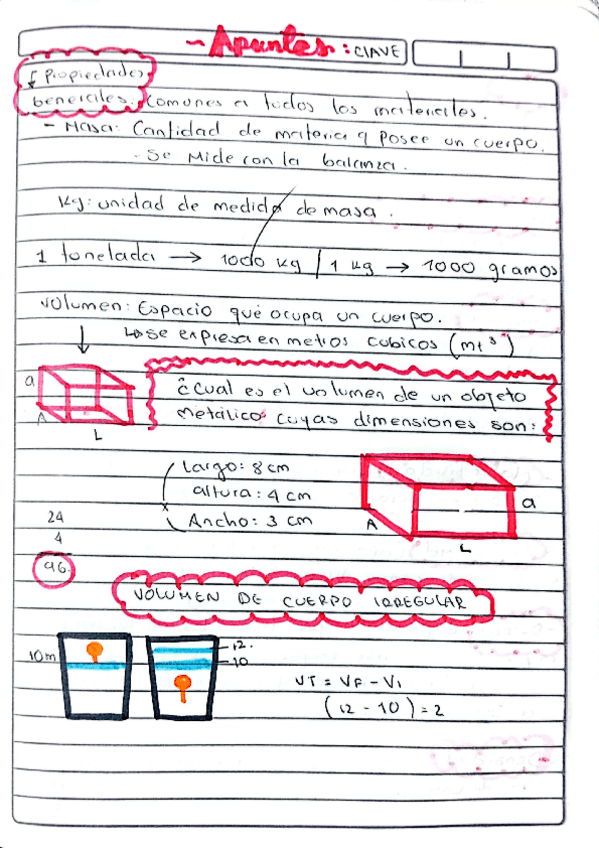 - Apuntes: CLAVE
Propiedades
Generales. Comunes a todos los materiales.
- Masa: Cantidad de materia q posee un cuerpo.
. Se Mide con la balanza.
Kg: unidad de medida de masa.
1 tonelada → 1000 kg / 1 kg → 1000 gramos
Volumen: Espacio que ocupa un cuerpo.
↳ se expresa en metros cubicos (mt³)
a
A
L
¿cual es el volumen de un objeto
metálico cuyas dimensiones son:
Largo: 8 cm
altura: 4 cm
x
Ancho: 3 cm
a
A
L
24
4
96.
VOLUMEN DE CUERPO IRREGULAR
10m
12.
10
VT = VF - Vi
(12 - 10) = 2